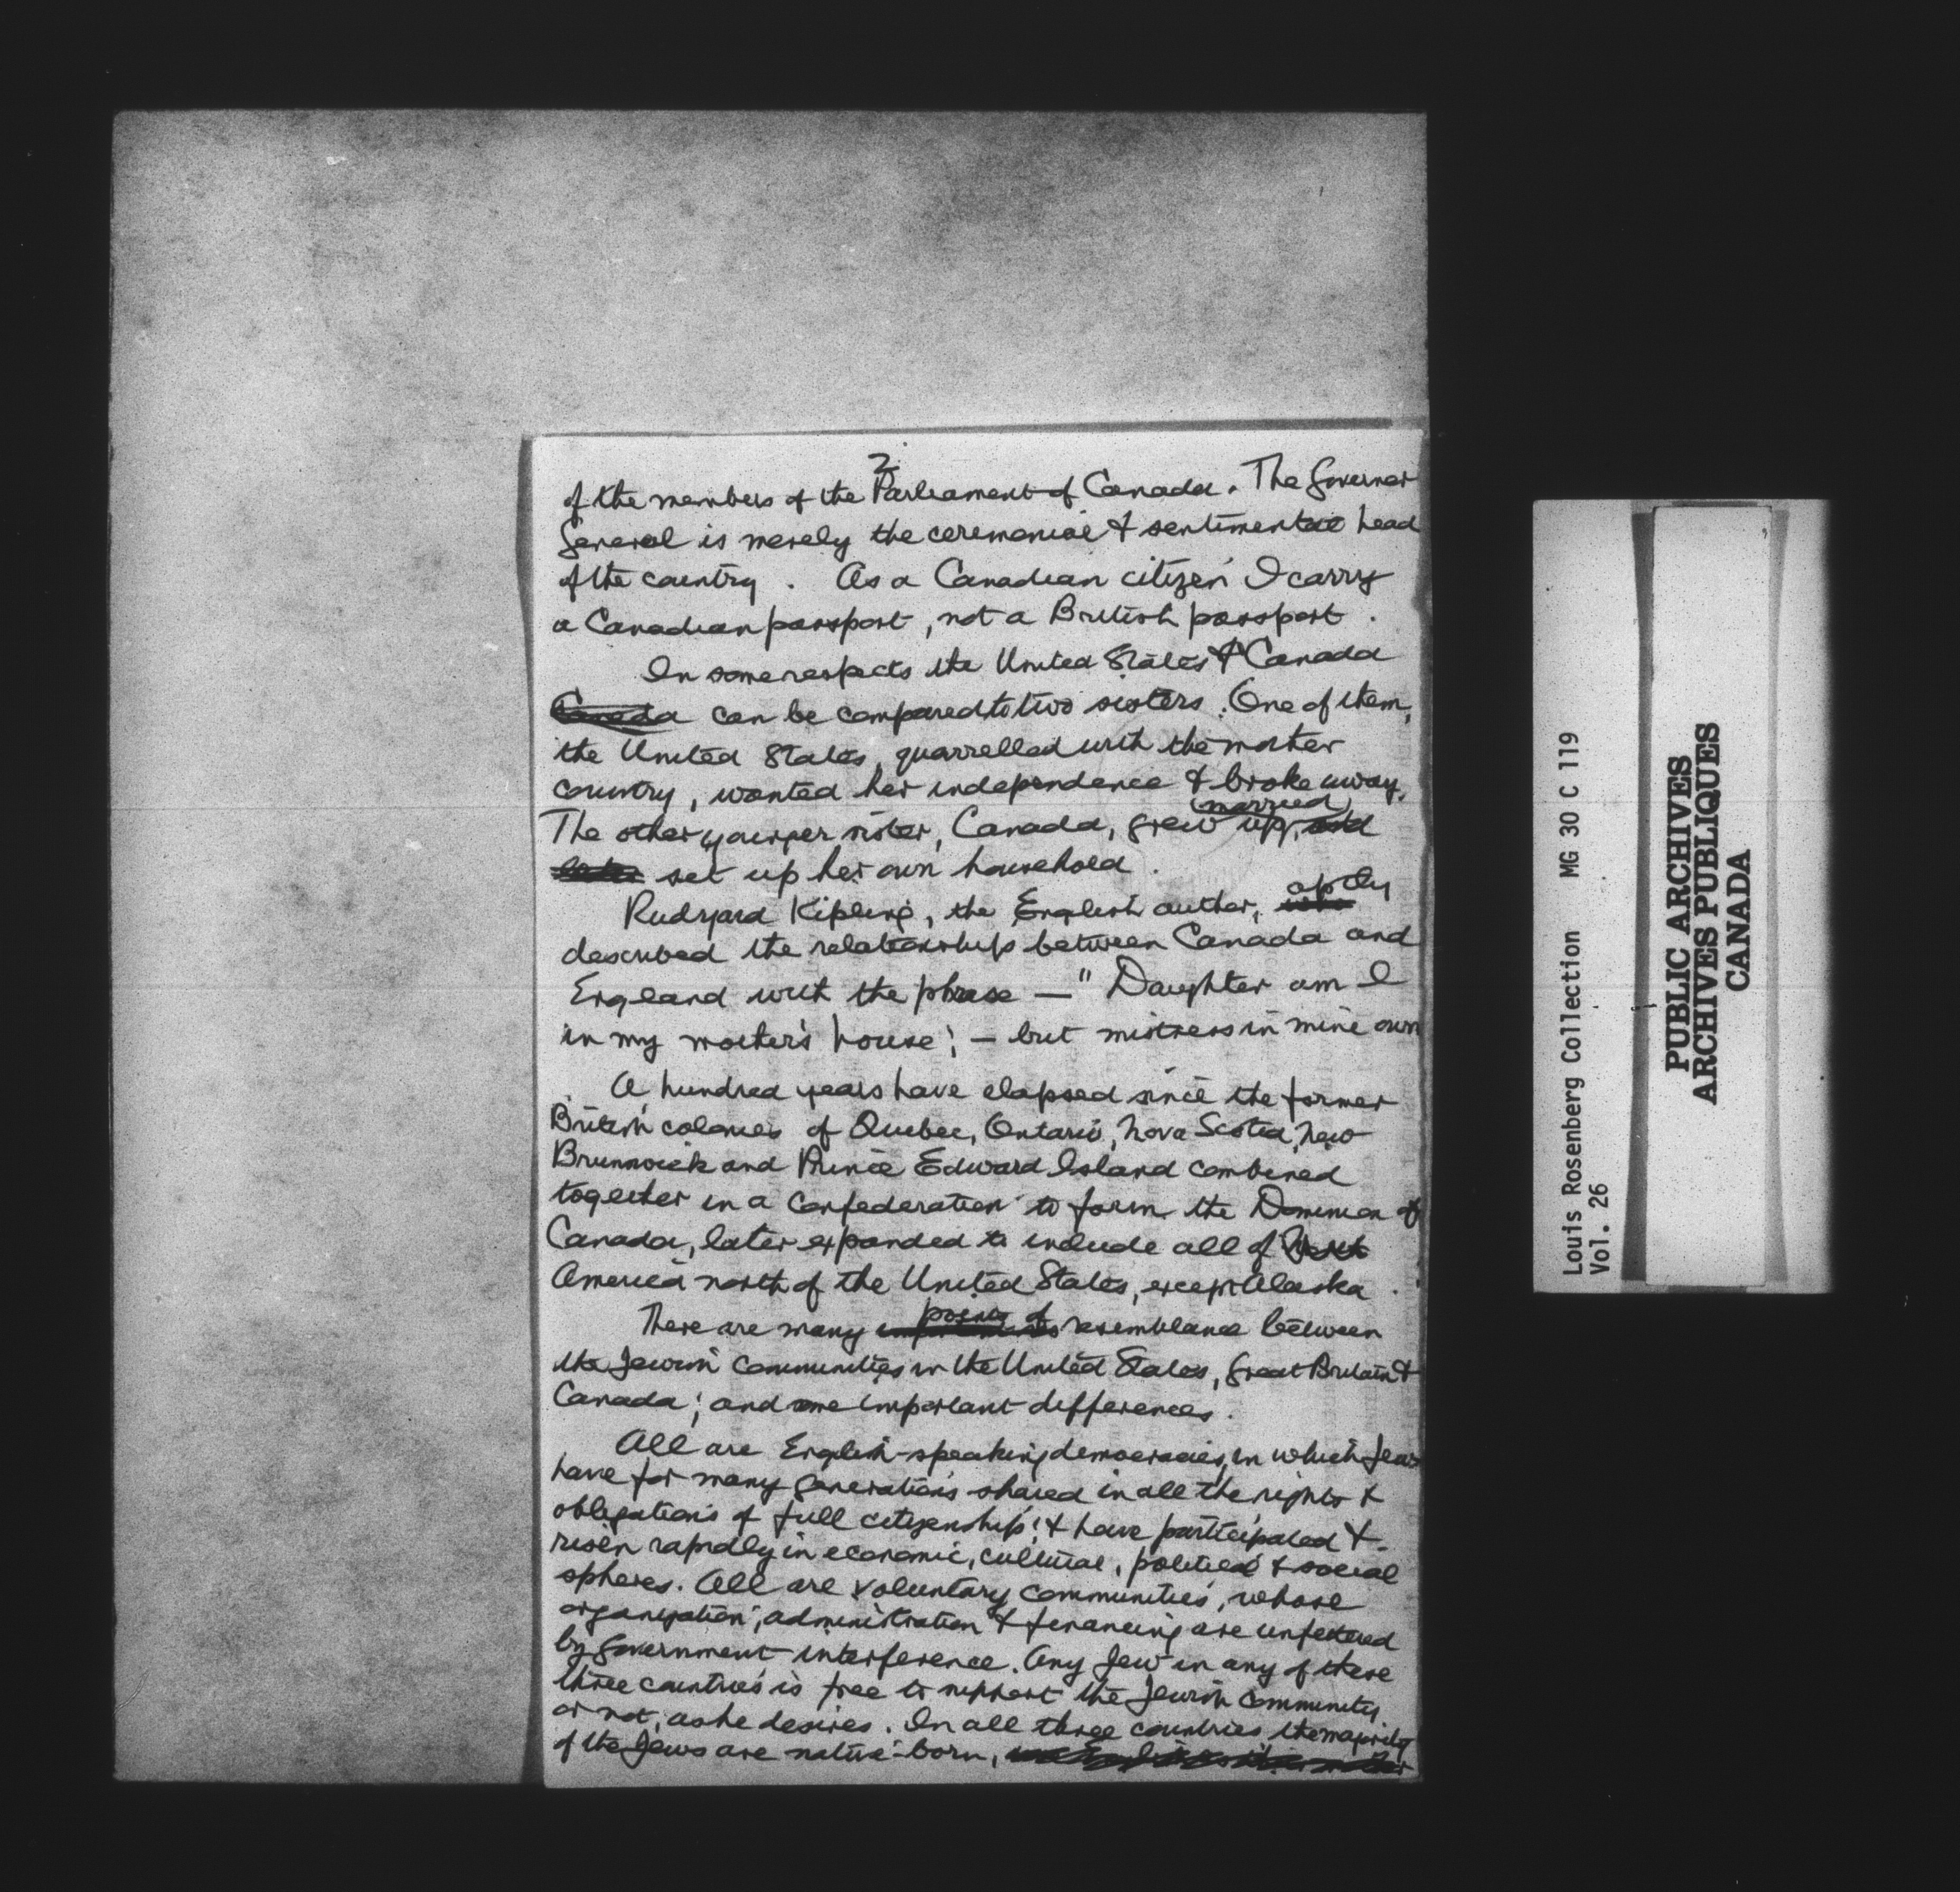 2.
of the members of the Parliament of Canada. The Governor
General is merely the ceremonial & sentimental head
of the country. As a Canadian citizen I carry
a Canadian passport, not a British passport.
In some respects the United States & Canada
Canada can be compared to two sisters. One of them,
the United States, quarrelled with the mother
country, wanted her independence & broke away.
married
The other younger sister, Canada, grew up, and
later set up her own household.
aptly
Rudyard Kipling, the English author, who
described the relationship between Canada and
England with the phrase — "Daughter am I
in my mother's house; — but mistress in mine own
A hundred years have elapsed since the former
British colonies of Quebec, Ontario, Nova Scotia, New
Brunswick and Prince Edward Island combined
together in a Confederation to form the Dominion of
Canada, later expanded to include all of North
America north of the United States, except Alaska.
points of
There are many resemblance between
the Jewish communities in the United States, Great Britain &
Canada; and some important differences.
All are English-speaking democracies, in which Jews
have for many generations shared in all the rights &
obligations of full citizenship; & have participated &
risen rapidly in economic, cultural, political & social
spheres. All are voluntary communities, whose
organization, administration & financing are unfettered
by government interference. Any Jew in any of these
three countries is free to support the Jewish community
or not, as he desires. In all three countries the majority
of the Jews are native-born,
Louis Rosenberg Collection MG 30 C 119
Vol. 26
PUBLIC ARCHIVES
ARCHIVES PUBLIQUES
CANADA